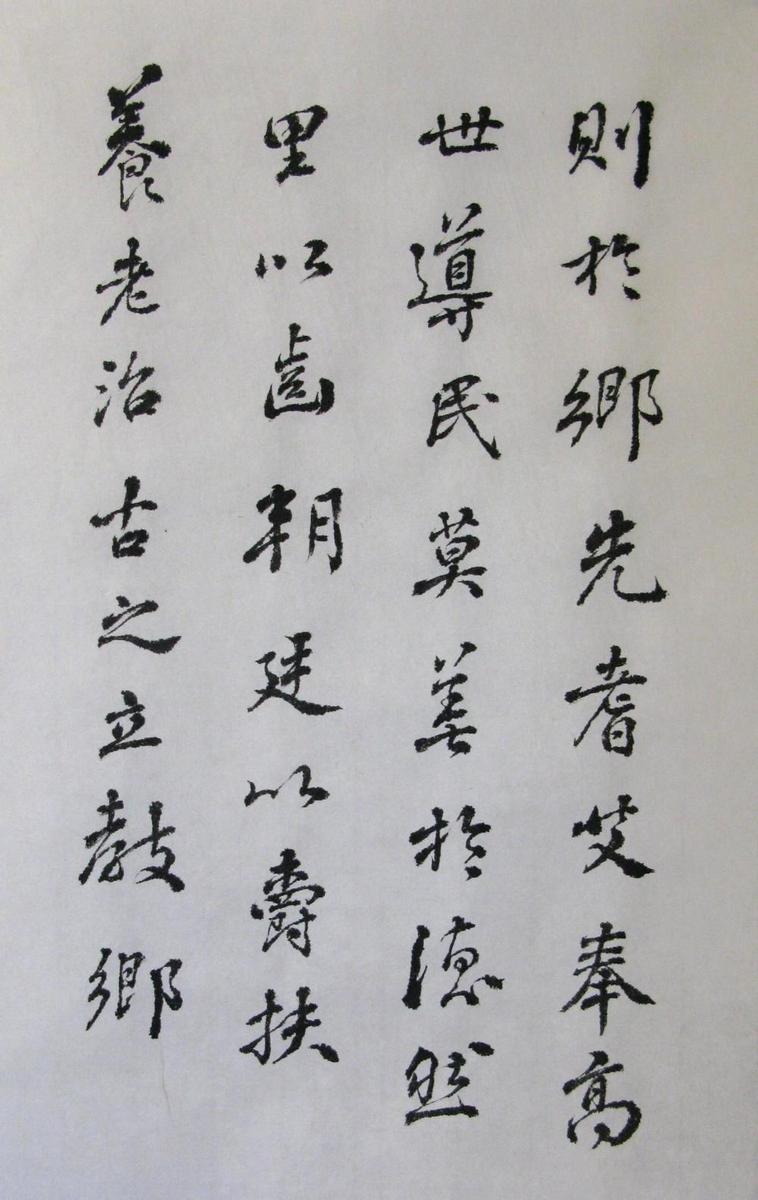 養老治古之立教鄉
里以齒朝廷以爵扶
世導民莫善於德然
則於鄉先耆艾奉高